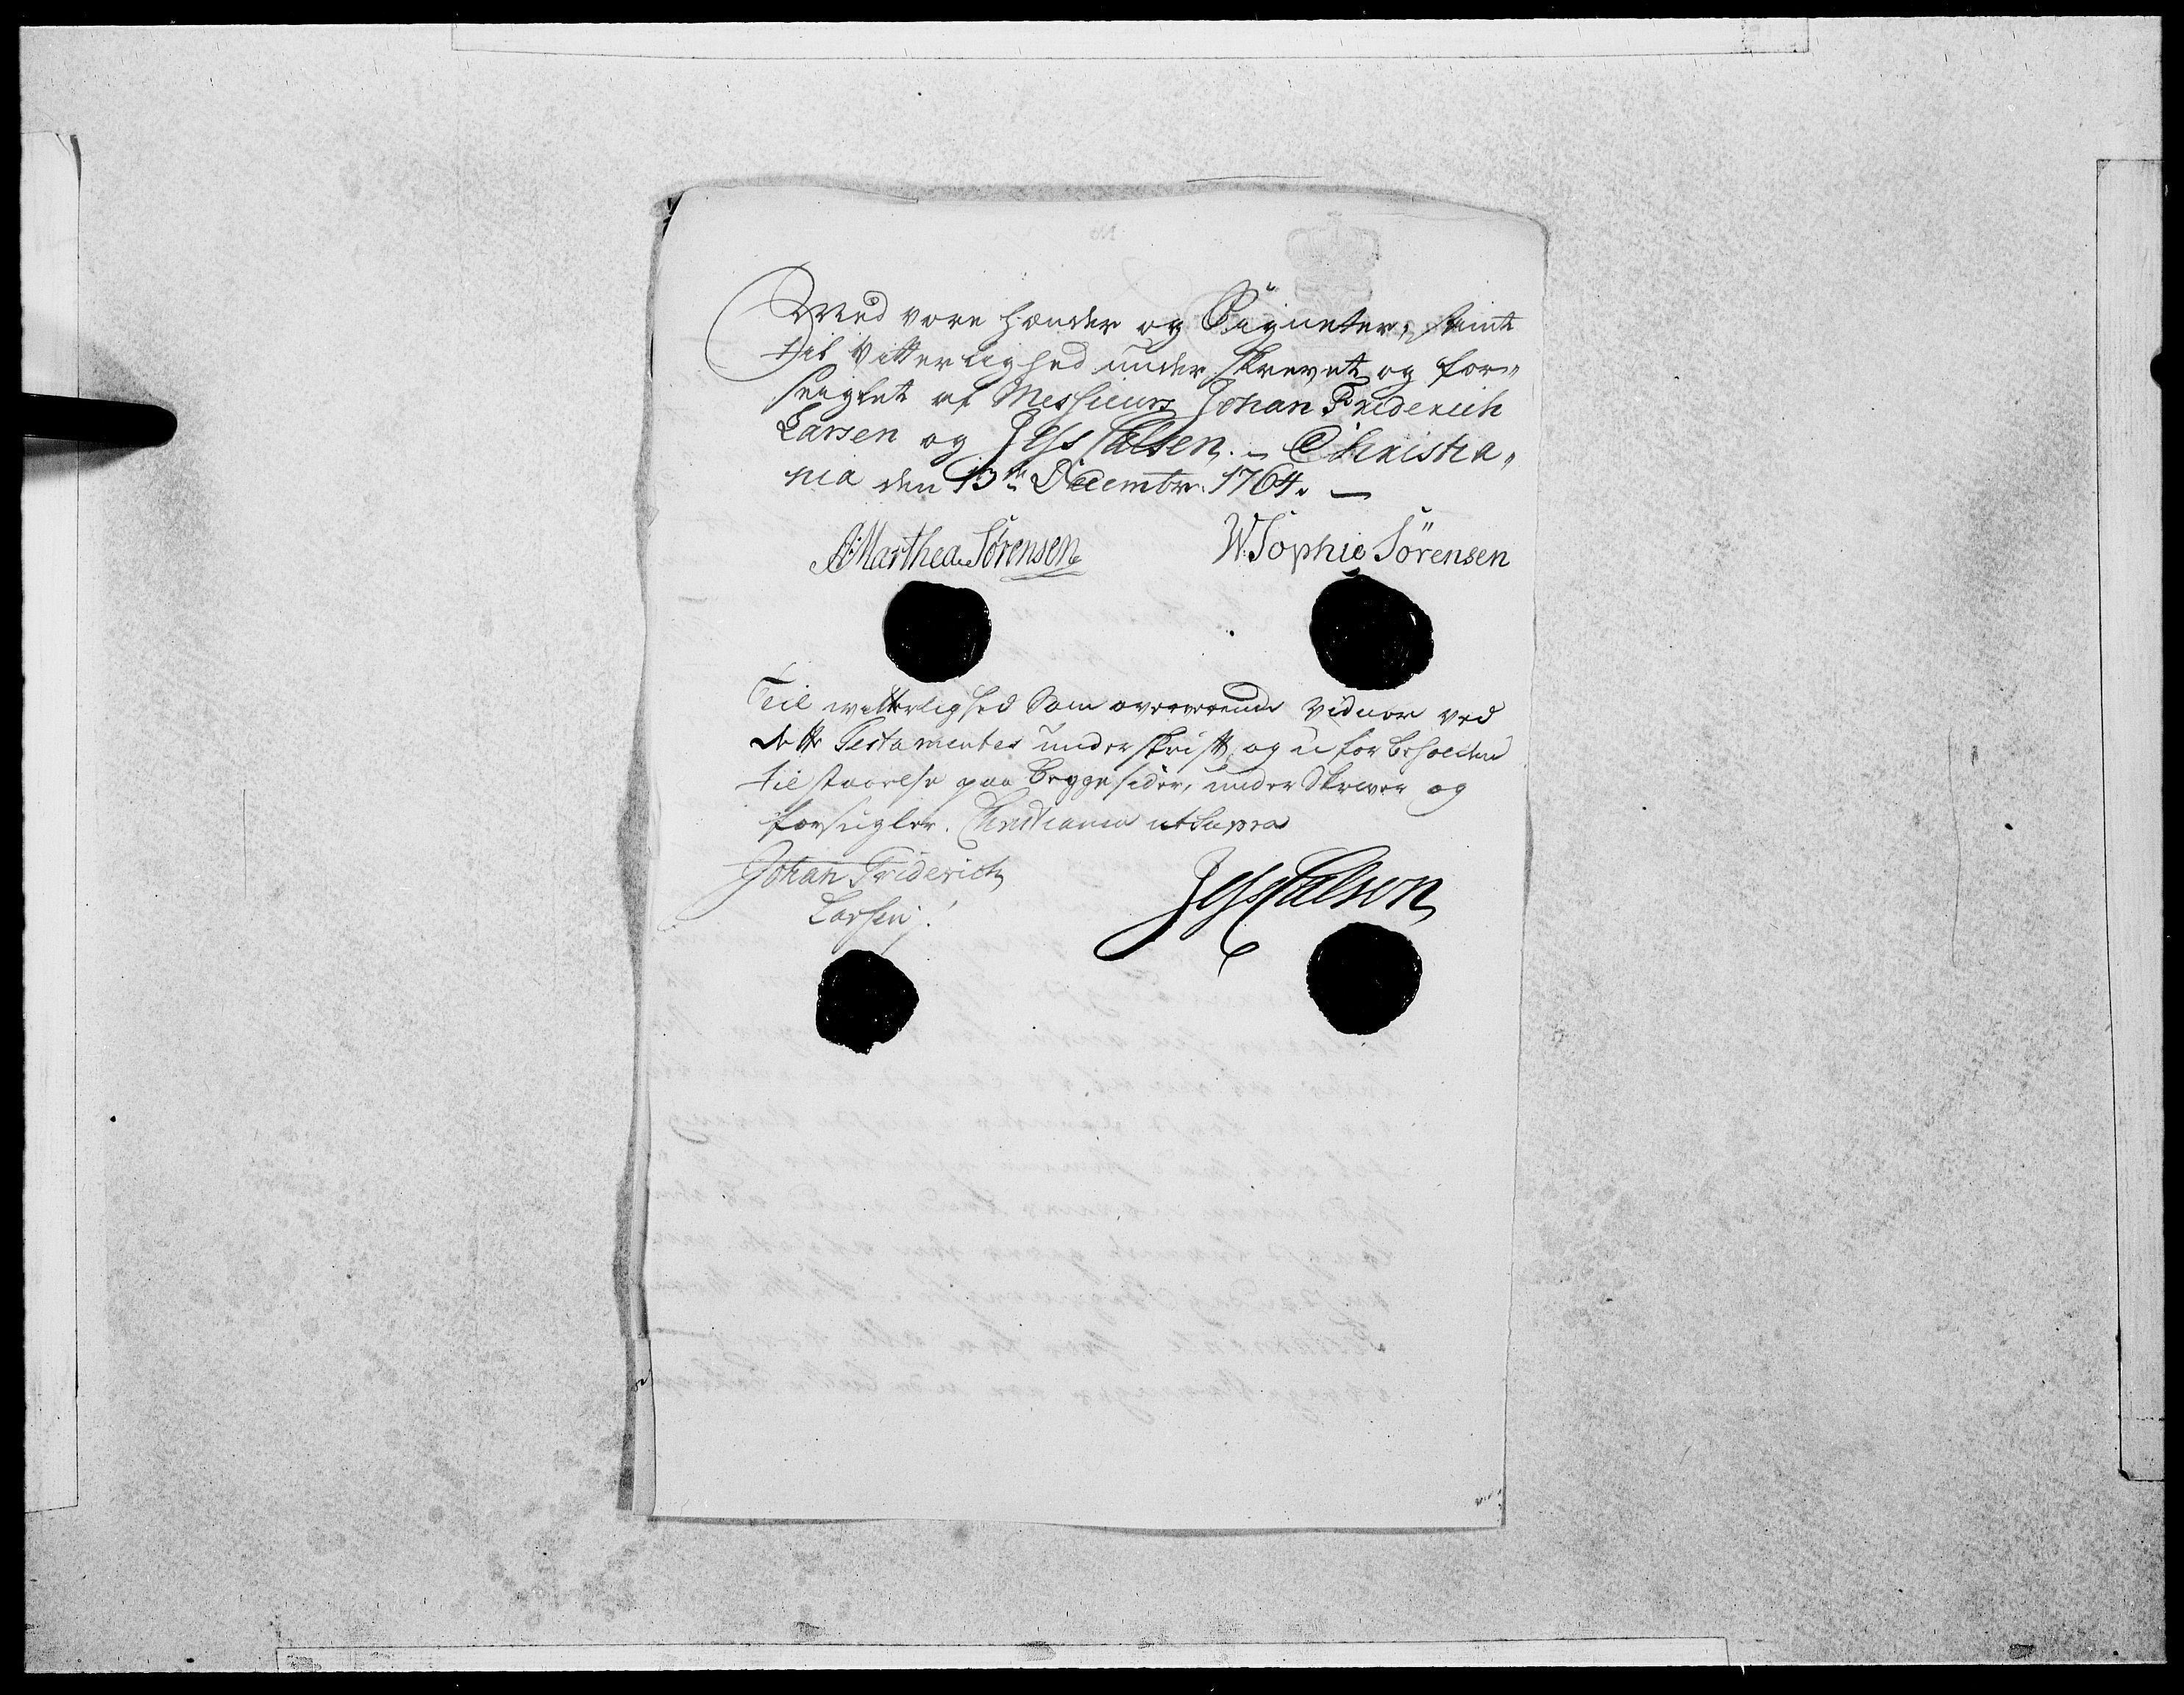 Med vore hænder og Signeter, samt
til Vitterlighed under skrevet og for„
seiglet af Messieurs Johan Friderich
Larsen og Jess Calsen. – Christia„
nia den 13de Decembr. 1764. –
A: Marthea Sörensen
W. Sophie Sörensen
Til witterlighed Som overværende Vidner ved
dette Testamentes underskrift, og u forbeholden
tilstaaelse paa begge sider, under Skrever og
forsegler. Christiania ut Supra
Johan Friderich
Larsen.
Jess Calsen